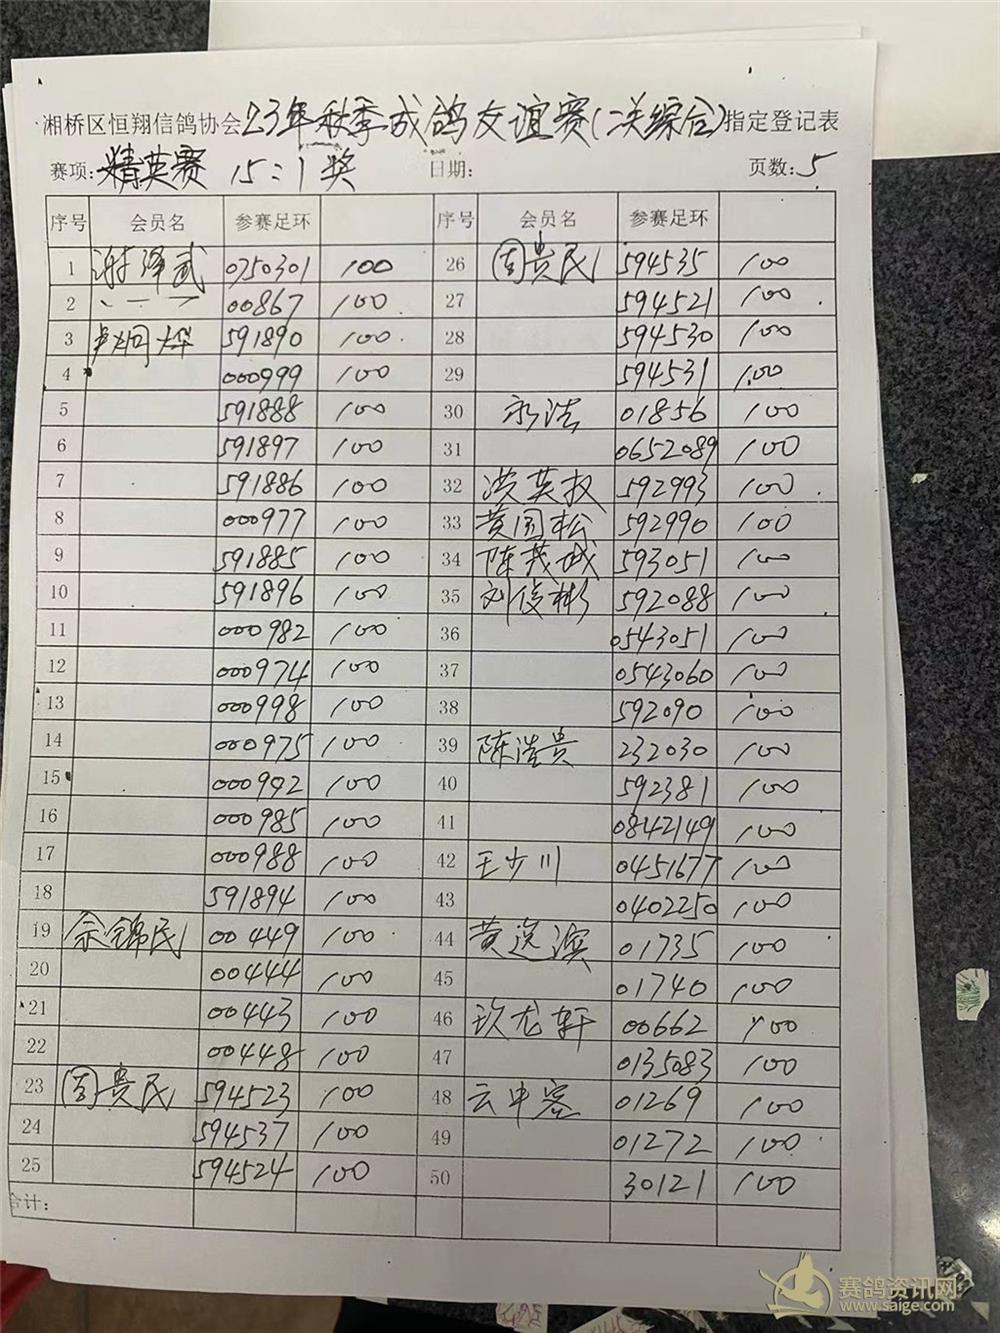 湘桥区恒翔信鸽协会23年秋季成鸽友谊赛(二关综合)指定登记表
赛项:精英赛 15:1奖 日期: 页数:5
序号 会员名 参赛足环 序号 会员名 参赛足环
1 谢泽武 0750301 100 26 周贵民 594535 100
2 、一一 00867 100 27 594521 100
3 591890 100 28 594530 100
4 000999 100 29 594531 100
5 591888 100 30 永浩 01856 100
6 591897 100 31 0652089 100
7 591886 100 32 洪英权 592993 100
8 000977 100 33 黄国松 592990 100
9 591885 100 34 陈茂城 593051 100
10 591896 100 35 刘俊彬 592088 100
11 000982 100 36 0543051 100
12 000974 100 37 0543060 100
13 000998 100 38 592090 100
14 000975 100 39 陈浩贵 232030 100
15 000992 100 40 592381 100
16 000985 100 41 0842149 100
17 000988 100 42 王少川 0451677 100
18 591894 100 43 0402250 100
19 余锦民 00449 100 44 黄逸滨 01735 100
20 00444 100 45 01740 100
21 00443 100 46 玖龙轩 00662 100
22 00448 100 47 0135083 100
23 周贵民 594523 100 48 云中客 01269 100
24 594537 100 49 01272 100
25 594524 100 50 30121 100
合计:
赛鸽资讯网
www.saige.com